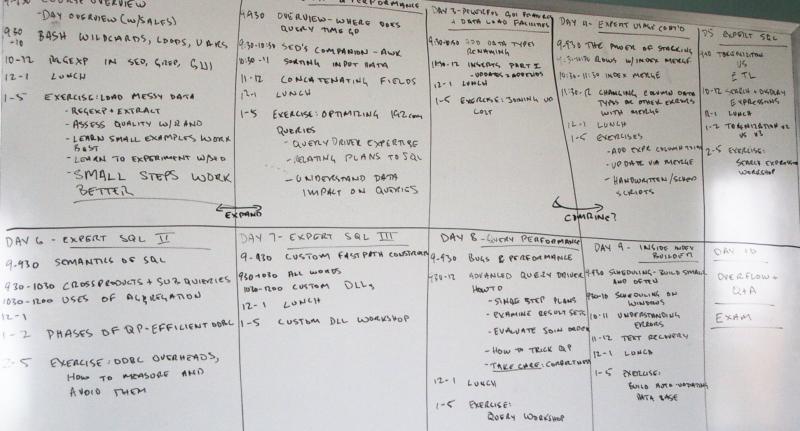 COURSE OVERVIEW
- DAY OVERVIEW (W/SALES)
9:30-10 BASH WILDCARDS, LOOPS, VARS
10-12 REGEXP IN SED, GREP,
12-1 LUNCH
1-5 EXERCISE: LOAD MESSY DATA
- REGEXP + EXTRACT
- ASSESS QUALITY W/RAND
- LEARN SMALL EXAMPLES WORK BEST
- LEARN TO EXPERIMENT
- SMALL STEPS WORK BETTER
& PERFORMANCE
9-930 OVERVIEW - WHERE DOES QUERY TIME GO
9:30-10:30 SED'S COMPANION - AWK
10:30-11 SORTING INPUT DATA
11-12 CONCATENATING FIELDS
12-1 LUNCH
1-5 EXERCISE: OPTIMIZING
QUERIES
- QUERY DRIVER EXPERTISE
- RELATING PLANS TO SQL
- UNDERSTAND DATA IMPACT ON QUERIES
EXPAND
DAY 3 - POWERFUL FEATURES
+ DATA LOAD FACILITIES
ADD DATA TYPES
RENAMING
INSERTS, PART I
- UPDATES + ADDENDS
12-1 LUNCH
1-5 EXERCISE: JOINING
COST
DAY 4 - EXPERT USAGE CONT'D
9-930 THE POWER OF STACKING
ROWS W/INDEX MERGE
10:30-11:30 INDEX MERGE
11:30-12 CHANGING COLUMN DATA
TYPES OR OTHER ERRORS
WITH MERGE
12-1 LUNCH
1-5 EXERCISES
- ADD EXPR COLUMN
- UPDATE VIA MERGE
- HANDWRITTEN/SCHED SCRIPTS
COMBINE?
D5 EXPERT SQL
TOKENIZATION
VS
ETL
10-12 SEARCH + DISPLAY
EXPRESSIONS
12-1 LUNCH
1-2 TOKENIZATION V2
VS V3
2-5 EXERCISE:
SEARCH EXPRESSION
WORKSHOP
DAY 6 - EXPERT SQL II
9-930 SEMANTICS OF SQL
930-1030 CROSS PRODUCTS + SUBQUERIES
1030-1200 USES OF AGGREGATION
12-1
1-2 PHASES OF QP-EFFICIENT ODBC
2-5 EXERCISE: ODBC OVERHEADS,
HOW TO MEASURE AND
AVOID THEM
DAY 7 - EXPERT SQL III
9-930 CUSTOM FASTPATH CONSTRAINTS
930-1030 ALL WORDS
1030-1200 CUSTOM DLLS
12-1 LUNCH
1-5 CUSTOM DLL WORKSHOP
DAY 8 - QUERY PERFORMANCE
9-930 BUGS & PERFORMANCE
930-12 ADVANCED QUERY DRIVER
HOWTO
- SINGLE STEP PLANS
- EXAMINE RESULT SETS
- EVALUATE JOIN ORDER
- HOW TO TRICK QP
- TAKE CARE:
12-1 LUNCH
1-5 EXERCISE:
QUERY WORKSHOP
DAY 9 - INSIDE INDEX
BUILDER
9-930 SCHEDULING - BUILD SMALL
AND OFTEN
930-10 SCHEDULING ON
WINDOWS
10-11 UNDERSTANDING
ERRORS
11-12 TEXT RECOVERY
12-1 LUNCH
1-5 EXERCISE:
BUILD AUTO-UPDATING
DATA BASE
DAY 10
OVERFLOW +
Q+A
EXAM